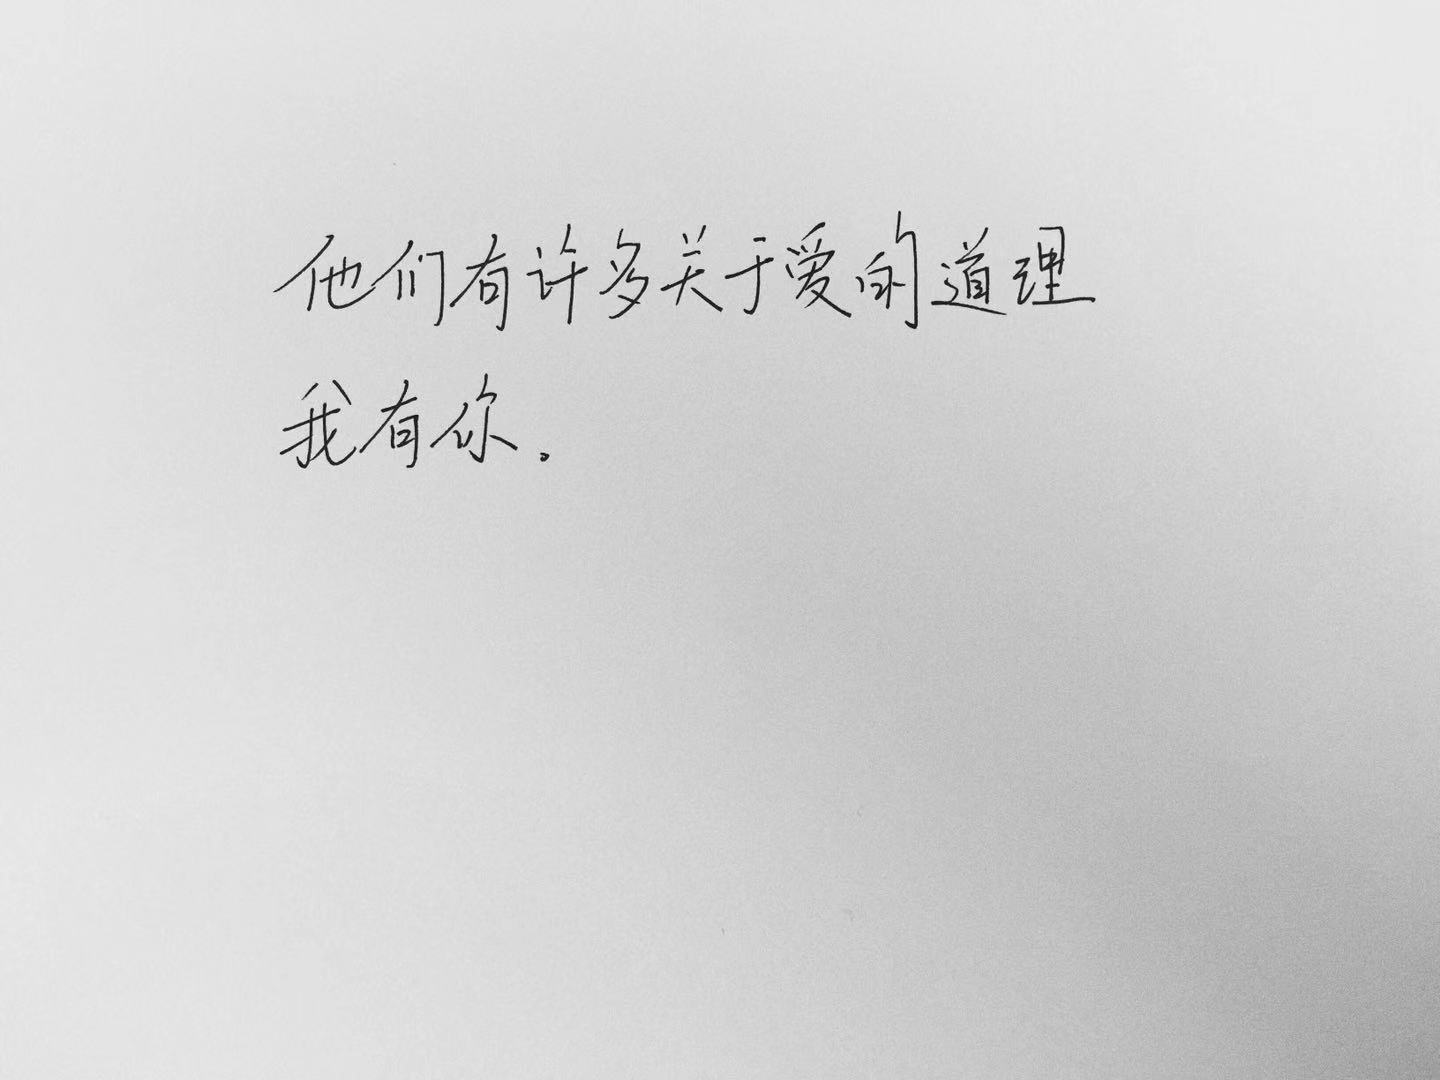 他们有许多关于爱的道理
我有你。